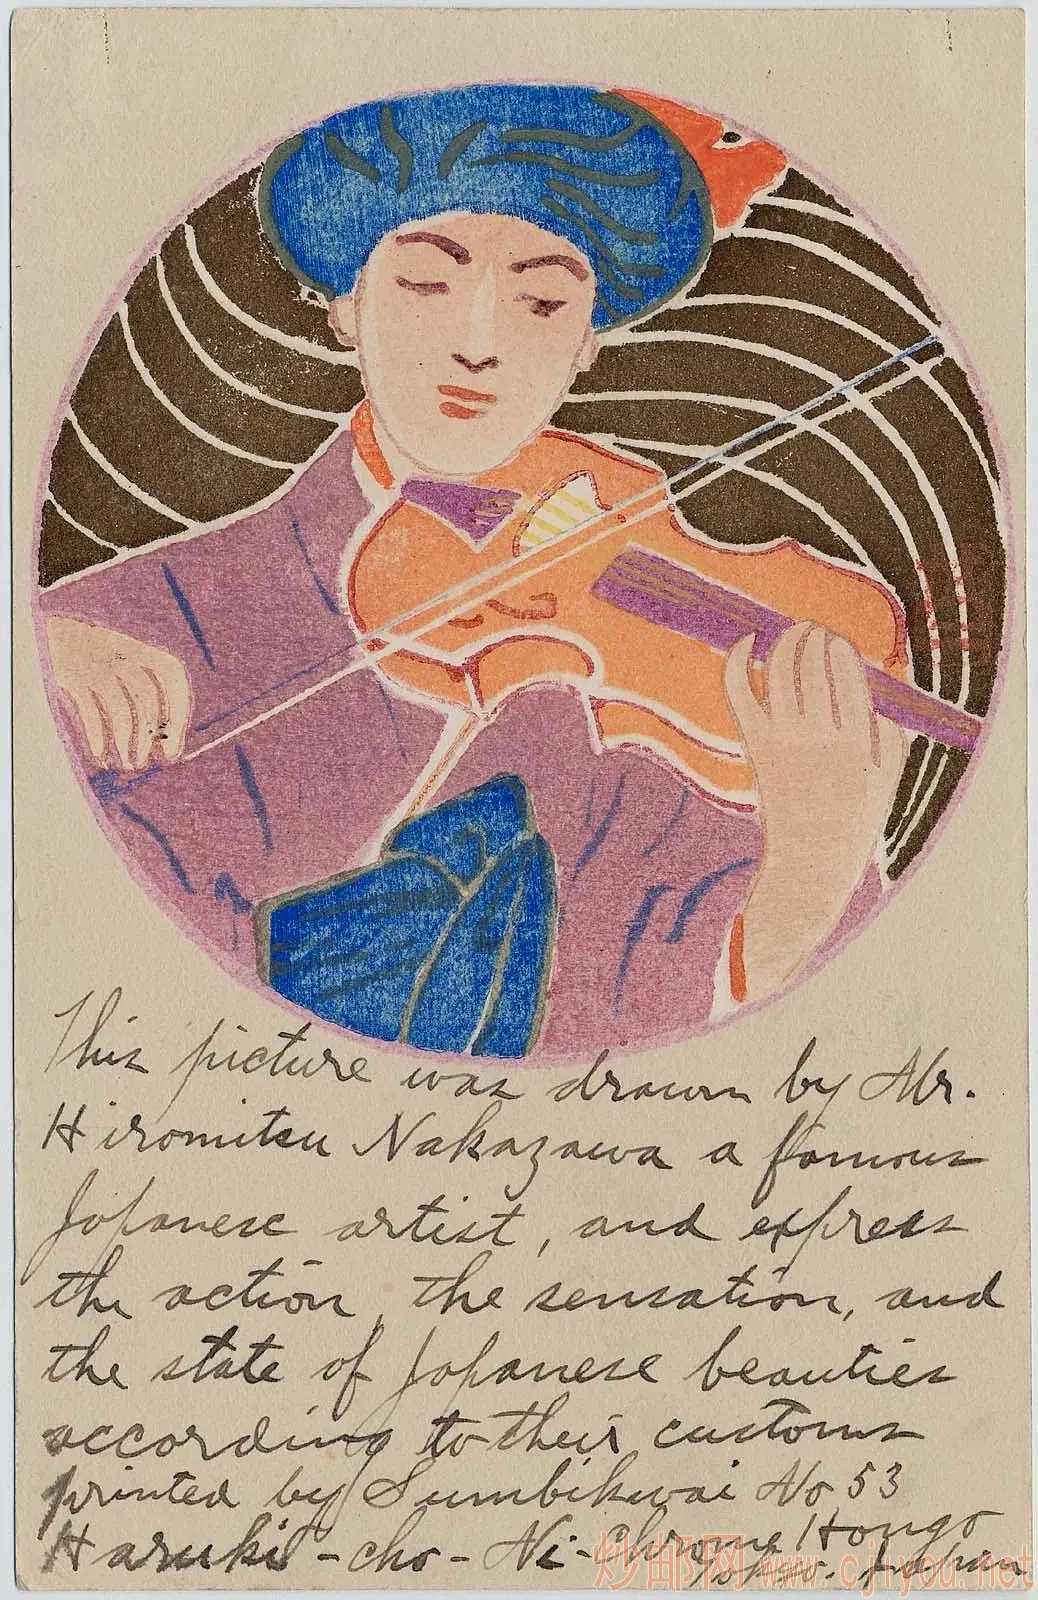 This picture was drawn by Mr.
Hiromitsu Nakazawa a famous
Japanese artist, and express
the action, the sensation, and
the state of Japanese beauties
according to their customs
printed by Sumbikwai No 53
Haruki-cho-Ni-Chrome Hongo
Tokyo. Japan
炒邮网 www.cjiyou.net